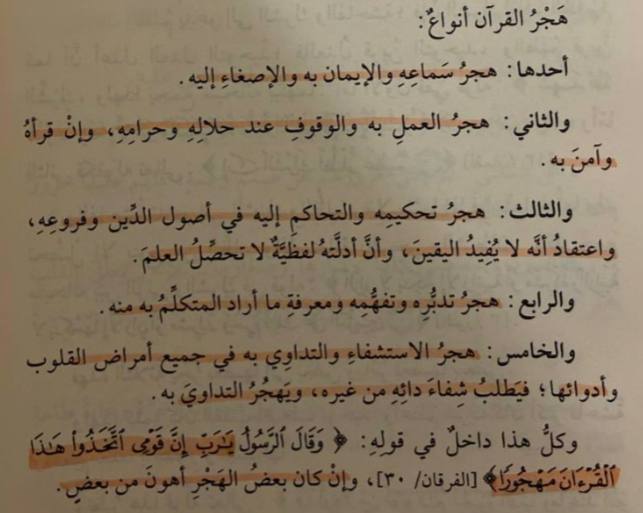 هَجْرُ القرآن أنواعٌ:
أحدها: هجرُ سَماعِهِ والإيمان به والإصغاءِ إليه.
والثاني: هجرُ العملِ به والوقوفِ عند حلالِهِ وحرامِهِ، وإنْ قرأهُ
وآمنَ به.
والثالث: هجرُ تحكيمِه والتحاكمِ إليه في أصول الدِّين وفروعِهِ،
واعتقادُ أنَّه لا يُفِيدُ اليقينَ، وأنَّ أدلَّتهُ لفظيَّةٌ لا تحصِّلُ العلمَ.
والرابع: هجرُ تدبُّرِه وتفهُّمِه ومعرفةِ ما أراد المتكلِّمُ به منه.
والخامس: هجرُ الاستشفاءِ والتداوِي به في جميع أمراض القلوب
وأدوائها؛ فيَطلبُ شِفاءَ دائِهِ من غيره، ويَهجُرُ التداويَ به.
وكلُّ هذا داخلٌ في قولِهِ: ﴿ وَقَالَ ٱلرَّسُولُ يَٰرَبِّ إِنَّ قَوْمِى ٱتَّخَذُوا۟ هَٰذَا
ٱلْقُرْءَانَ مَهْجُورًا﴾ [الفرقان/ ٣٠]، وإنْ كان بعضُ الهَجْرِ أهونَ من بعضٍ.